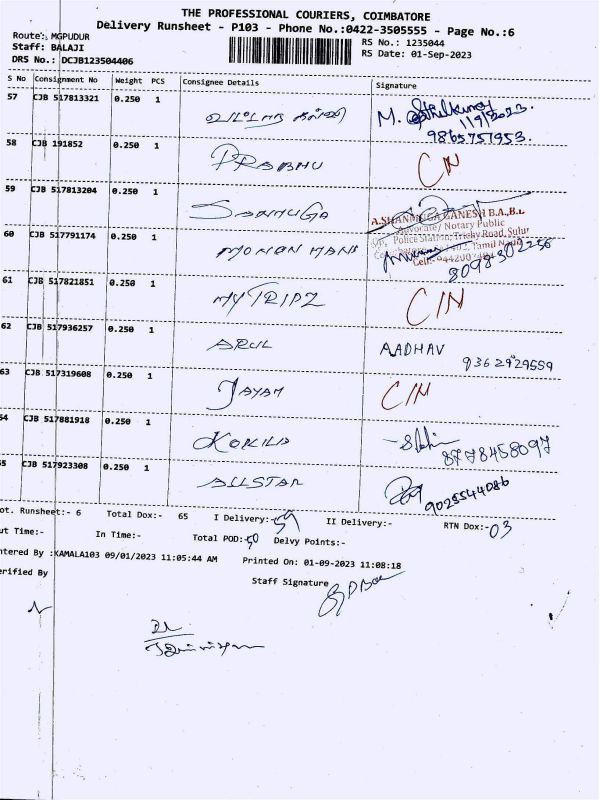 THE PROFESSIONAL COURIERS, COIMBATORE
Delivery Runsheet - P103 - Phone No.:0422-3505555 - Page No.:6
Route: MGPUDUR
Staff: BALAJI
RS No.: 1235044
DRS No.: DCJB123504406
RS Date: 01-Sep-2023
S No Consignment No Weight PCS Consignee Details Signature
57 CJB 517813321 0.250 1 M. 11/9/2023.
9865757953.
58 CJB 191852 0.250 1 PRABHU CIN
59 CJB 517813204 0.250 1 SANMUGA
A.SHANMUGA GANESH B.A.,B.L
Advocate/ Notary Public
Police Station, Trichy Road, Sulur
60 CJB 517791174 0.250 1 MOHAN MANI
Tamil Nadu
Cell:
8098302256
61 CJB 517821851 0.250 1 MYTRIPZ CIN
62 CJB 517936257 0.250 1 ARUL AADHAV
9362929559
63 CJB 517319608 0.250 1 JAYAM CIN
54 CJB 517881918 0.250 1 KOKILA
8778458097
55 CJB 517923308 0.250 1 ALLSTAR
9025544086
ot. Runsheet:- 6 Total Dox:- 65 I Delivery:- 59 II Delivery:- RTN Dox:- 03
ut Time:- In Time:- Total POD:- 50 Delvy Points:-
ntered By :KAMALA103 09/01/2023 11:05:44 AM Printed On: 01-09-2023 11:08:18
erified By Staff Signature